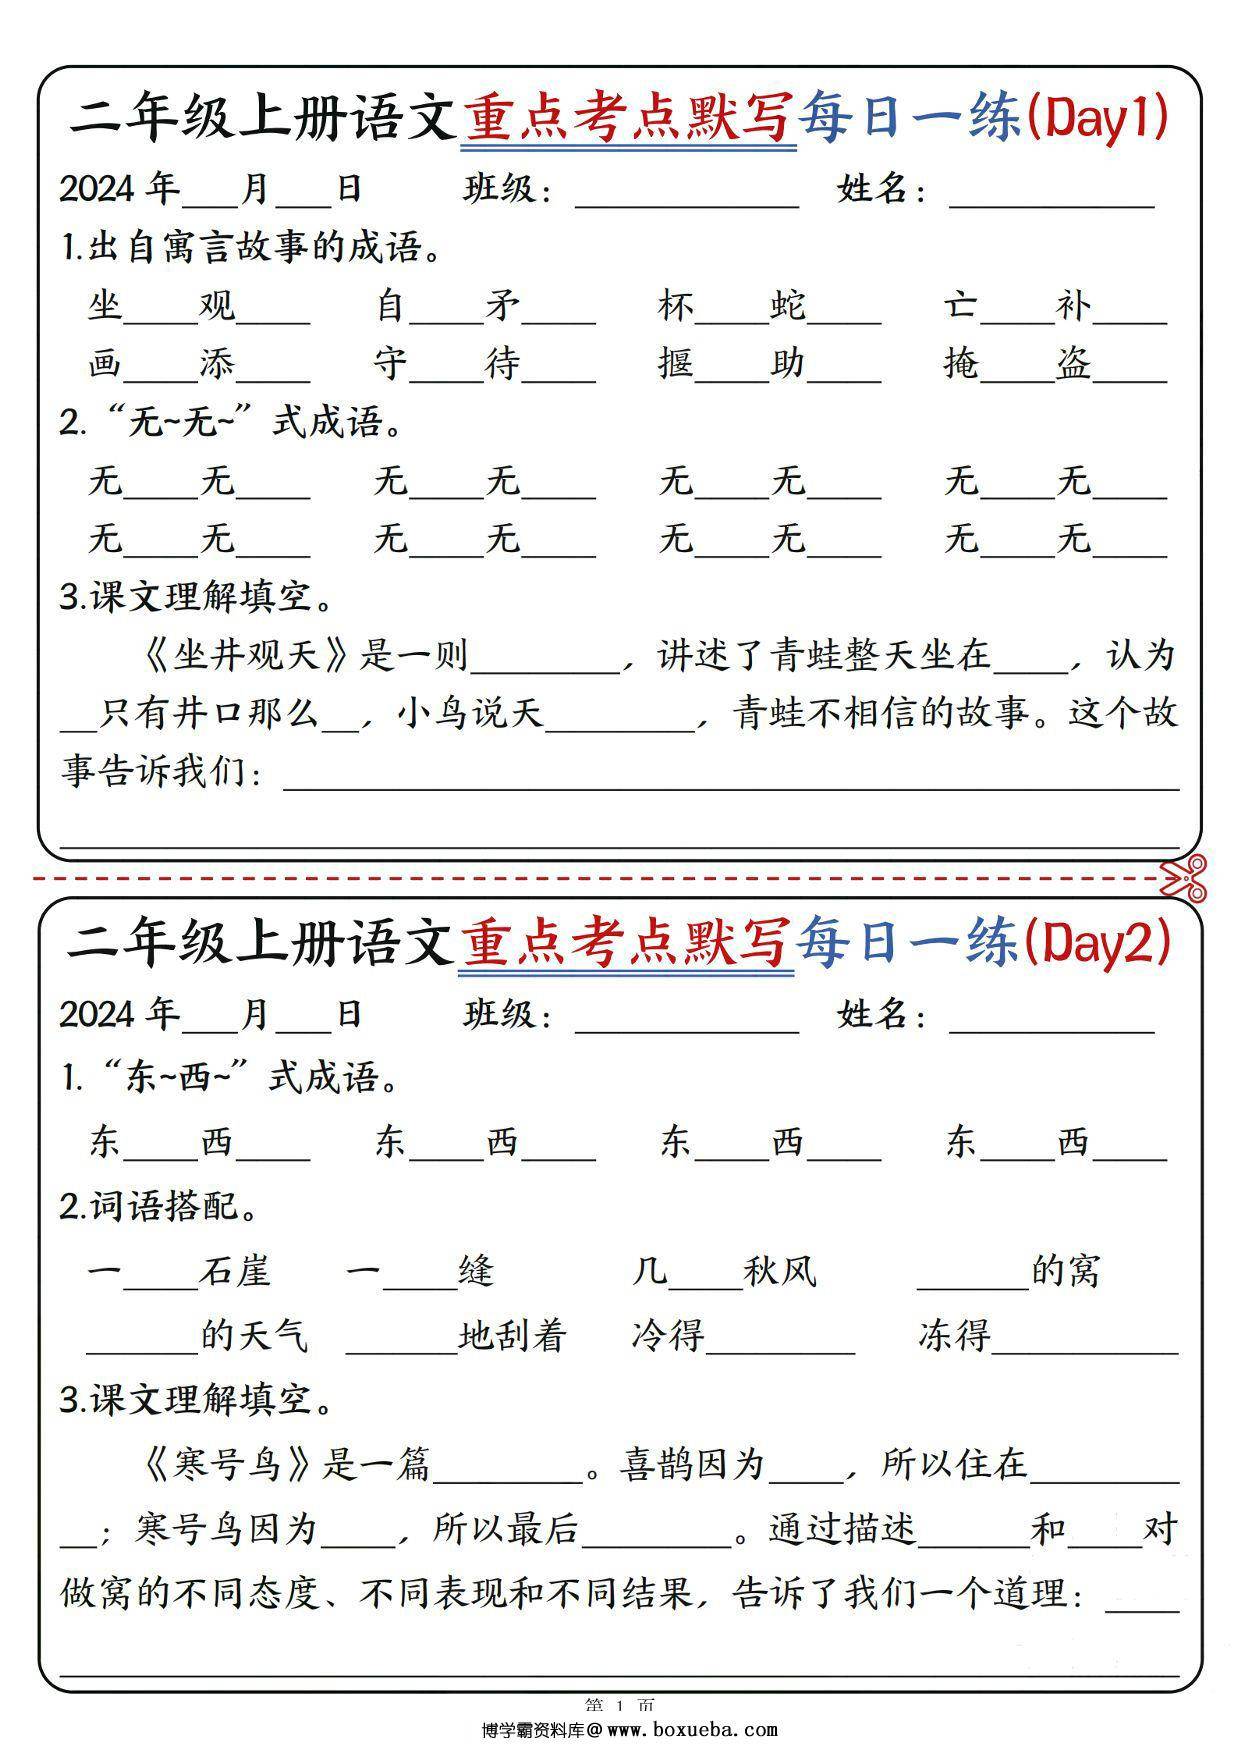 二年级上册语文重点考点默写每日一练(Day1)
2024 年___月___日 班级：____________ 姓名：___________
1.出自寓言故事的成语。
坐____观____ 自____矛____ 杯____蛇____ 亡____补____
画____添____ 守____待____ 揠____助____ 掩____盗____
2.“无~无~”式成语。
无____无____ 无____无____ 无____无____ 无____无____
无____无____ 无____无____ 无____无____ 无____无____
3.课文理解填空。
《坐井观天》是一则________，讲述了青蛙整天坐在____，认为
__只有井口那么__，小鸟说天________，青蛙不相信的故事。这个故
事告诉我们：________________________________________________
____________________________________________________________
二年级上册语文重点考点默写每日一练(Day2)
2024 年___月___日 班级：____________ 姓名：___________
1.“东~西~”式成语。
东____西____ 东____西____ 东____西____ 东____西____
2.词语搭配。
一____石崖 一____缝 几____秋风 ______的窝
______的天气 ______地刮着 冷得________ 冻得__________
3.课文理解填空。
《寒号鸟》是一篇________。喜鹊因为____，所以住在________
__；寒号鸟因为____，所以最后________。通过描述______和____对
做窝的不同态度、不同表现和不同结果，告诉了我们一个道理：____
____________________________________________________________
第 1 页
博学霸资料库@www.boxueba.com